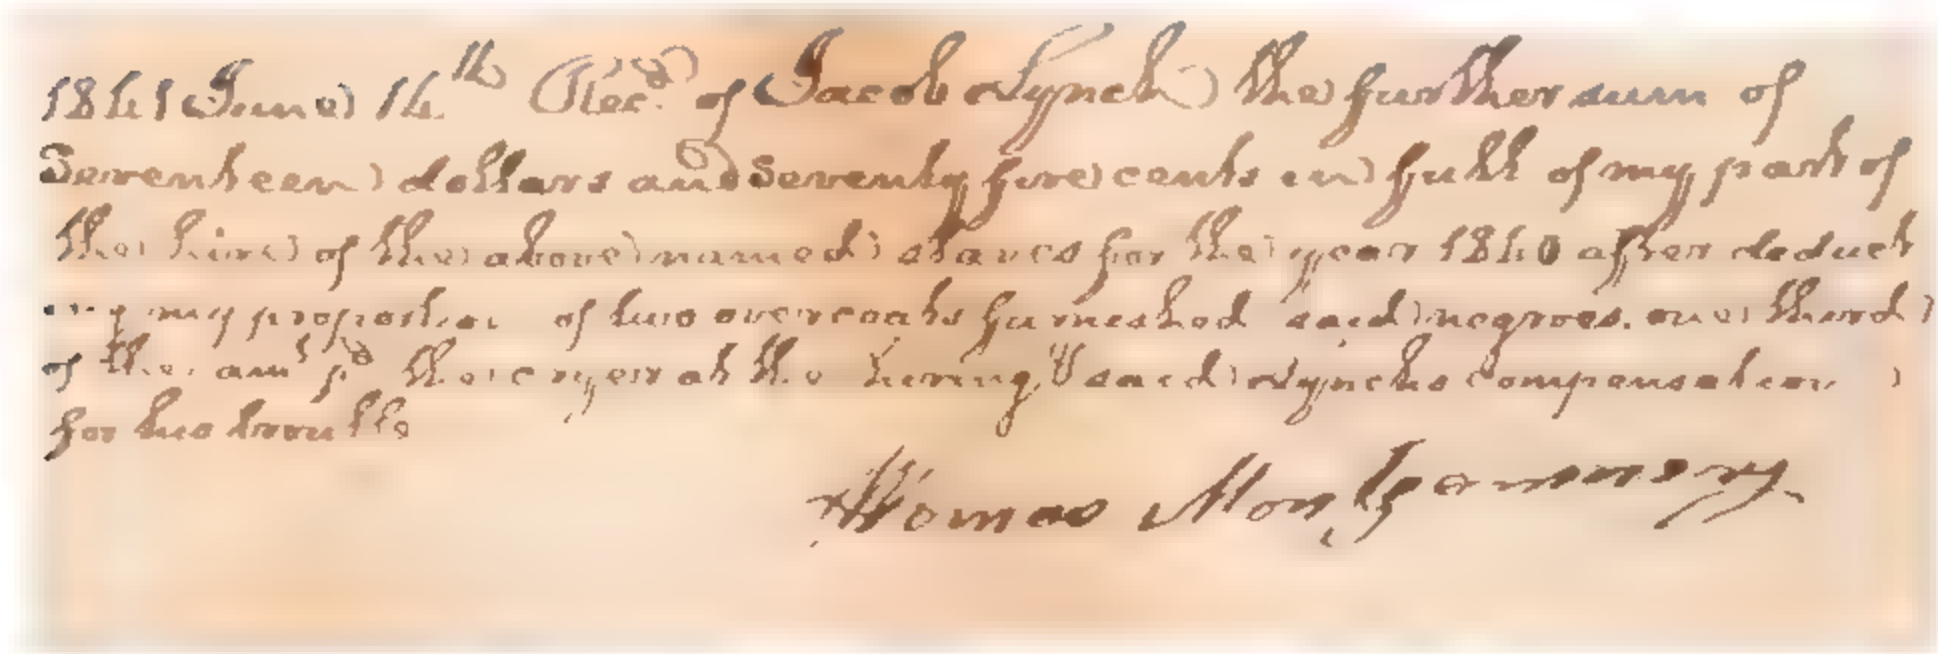 1841 June 14th Recd. of Jacob Lynch the further sum of
Seventeen dollars and Seventy five cents in full of my part of
the hire of the above named slaves for the year 1840 after deduct
ing my proportion of two overcoats furnished said negroes. one third
of the amt pd the cryer at the hireing, & said Lynchs compensation
for his trouble
Thomas Montgomery